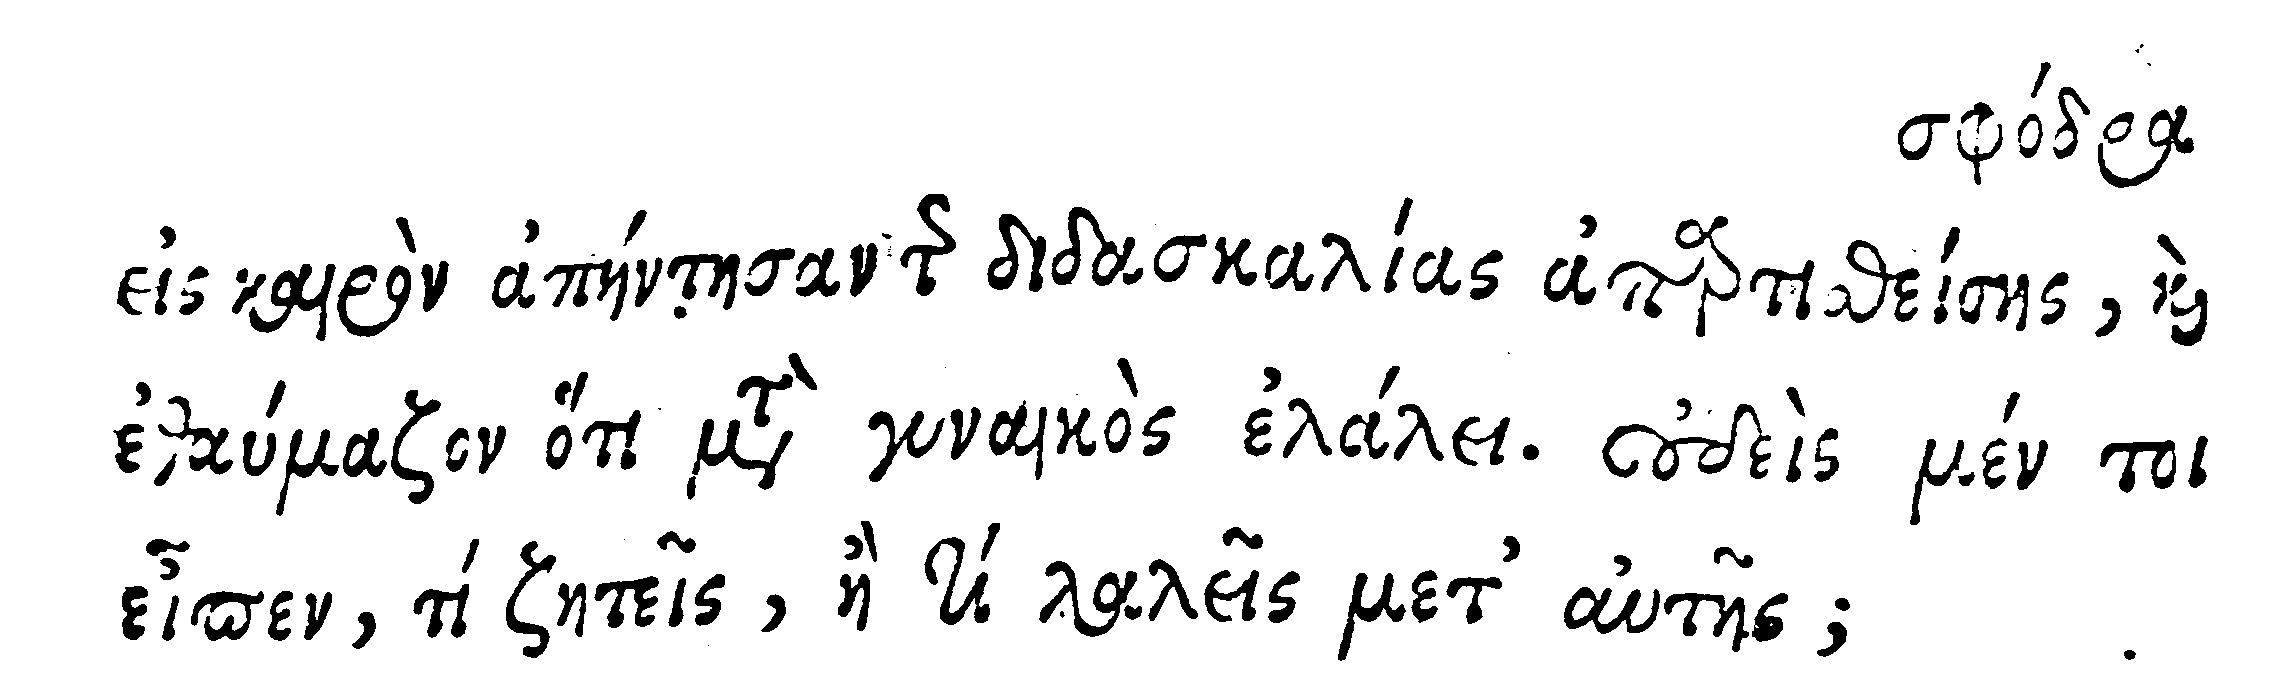 σφόδρα
εἰς καιρὸν ἀπήντησαν τῆς διδασκαλίας ἀπαρτισθείσης, καὶ
ἐθαύμαζον ὅτι μετὰ γυναικὸς ἐλάλει. οὐδεὶς μέν τοι
εἶπεν, τί ζητεῖς, ἢ τί λαλεῖς μετ' αὐτῆς;